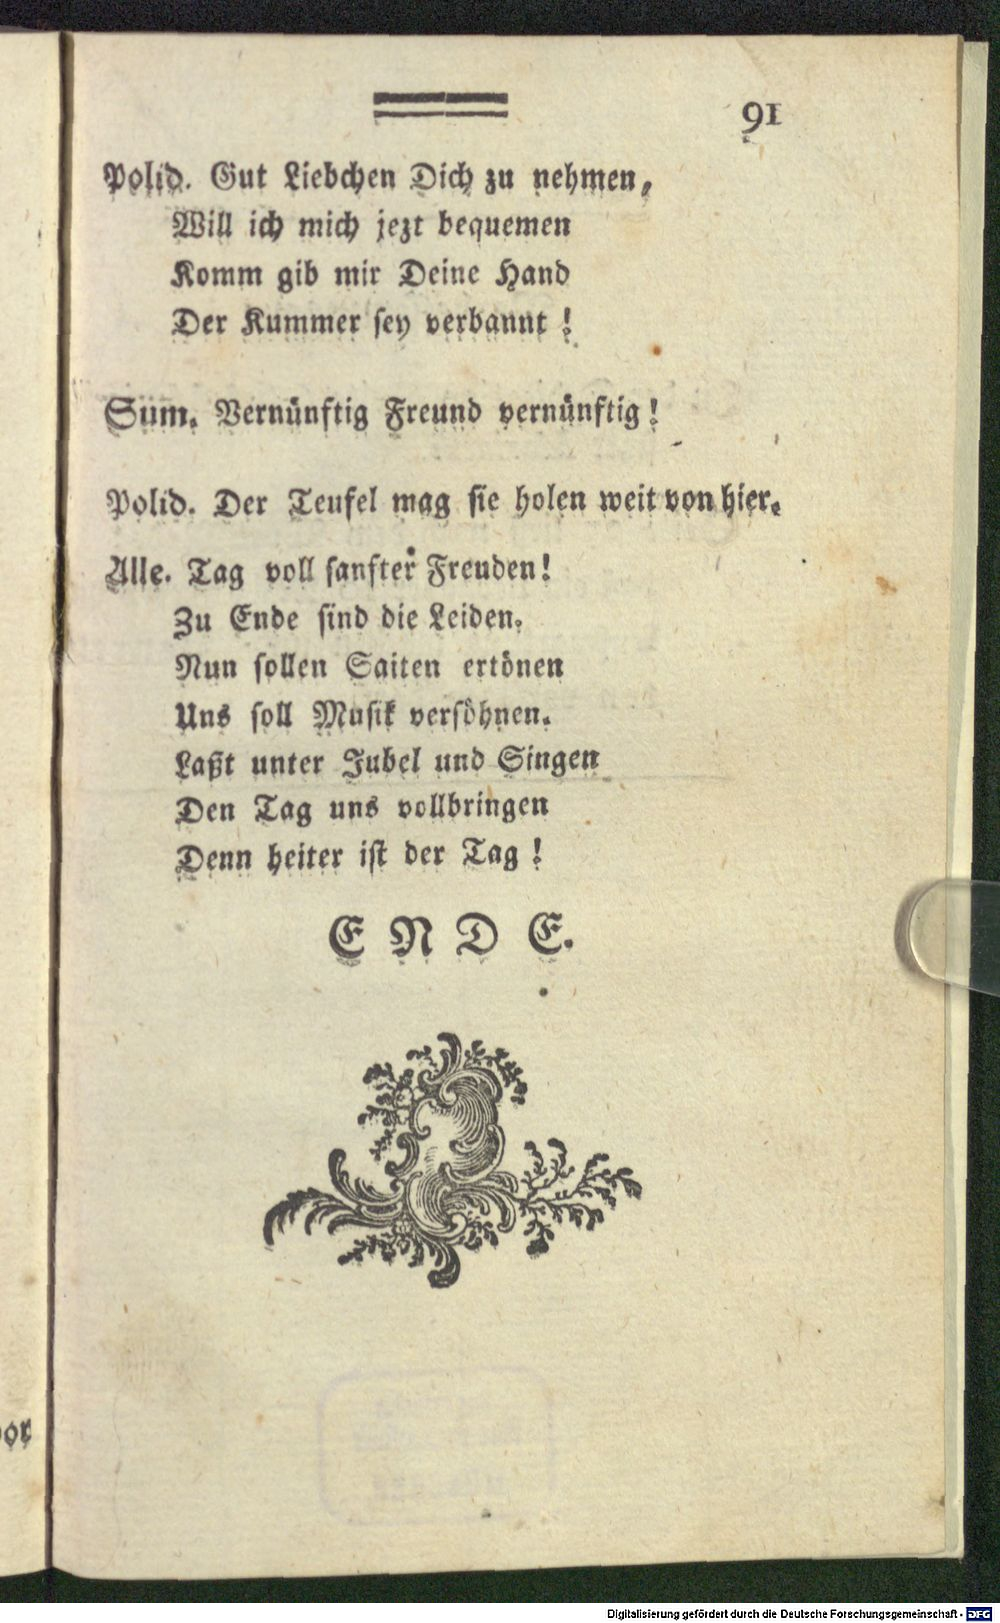 91
Polid. Gut Liebchen Dich zu nehmen,
Will ich mich jezt bequemen
Komm gib mir Deine Hand
Der Kummer sey verbannt!
Sum. Vernünftig Freund vernünftig!
Polid. Der Teufel mag sie holen weit von hier.
Alle. Tag voll sanfter Freuden!
Zu Ende sind die Leiden.
Nun sollen Saiten ertönen
Uns soll Musik versöhnen.
Laßt unter Jubel und Singen
Den Tag uns vollbringen
Denn heiter ist der Tag!
ENDE.
Digitalisierung gefördert durch die Deutsche Forschungsgemeinschaft - DFG